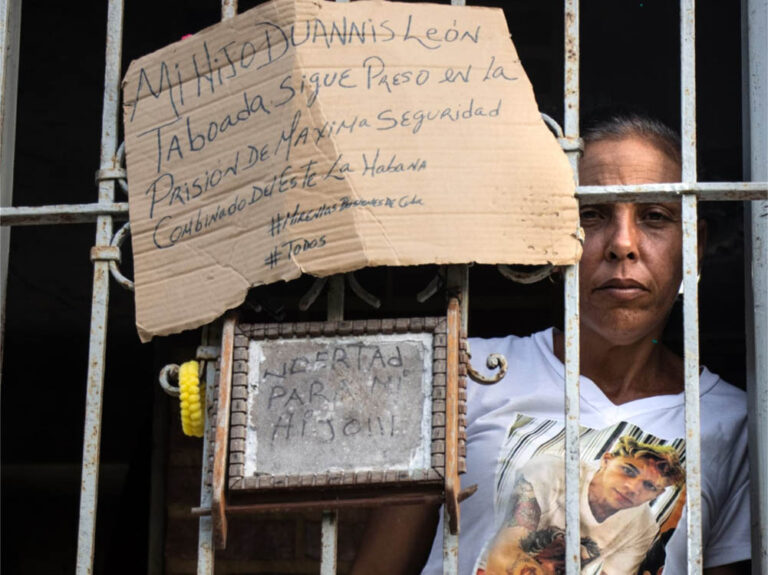 Mi Hijo Duannis León
Taboada Sigue Preso en la
Prisión De Maxima Seguridad
Combinado Del Este La Habana
#Mirenlas Prisiones De Cuba
#Todos
LIBERTAD
PARA MI
HIJO!!!